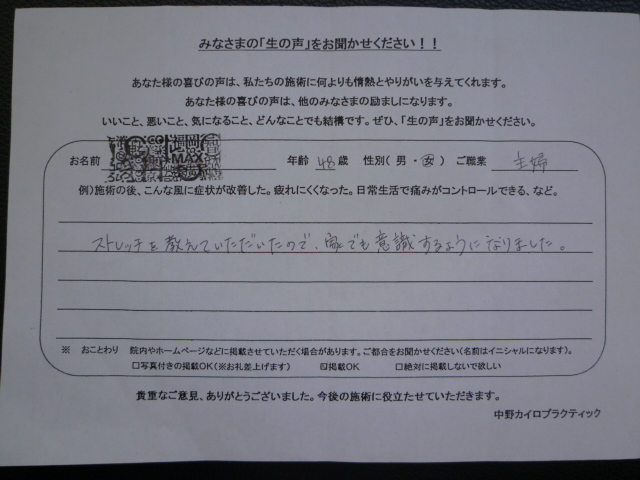 みなさまの「生の声」をお聞かせください！！
あなた様の喜びの声は、私たちの施術に何よりも情熱とやりがいを与えてくれます。
あなた様の喜びの声は、他のみなさまの励ましになります。
いいこと、悪いこと、気になること、どんなことでも結構です。ぜひ、「生の声」をお聞かせください。
お名前 年齢 48 歳 性別（男・女）ご職業 主婦
例）施術の後、こんな風に症状が改善した。疲れにくくなった。日常生活で痛みがコントロールできる、など。
ストレッチを教えていただいたので、家でも意識するようになりました。
※ おことわり 院内やホームページなどに掲載させていただく場合があります。ご都合をお聞かせください（名前はイニシャルになります）。
□写真付きの掲載OK（※お礼差上げます） ☑掲載OK □絶対に掲載しないで欲しい
貴重なご意見、ありがとうございました。今後の施術に役立たせていただきます。
中野カイロプラクティック